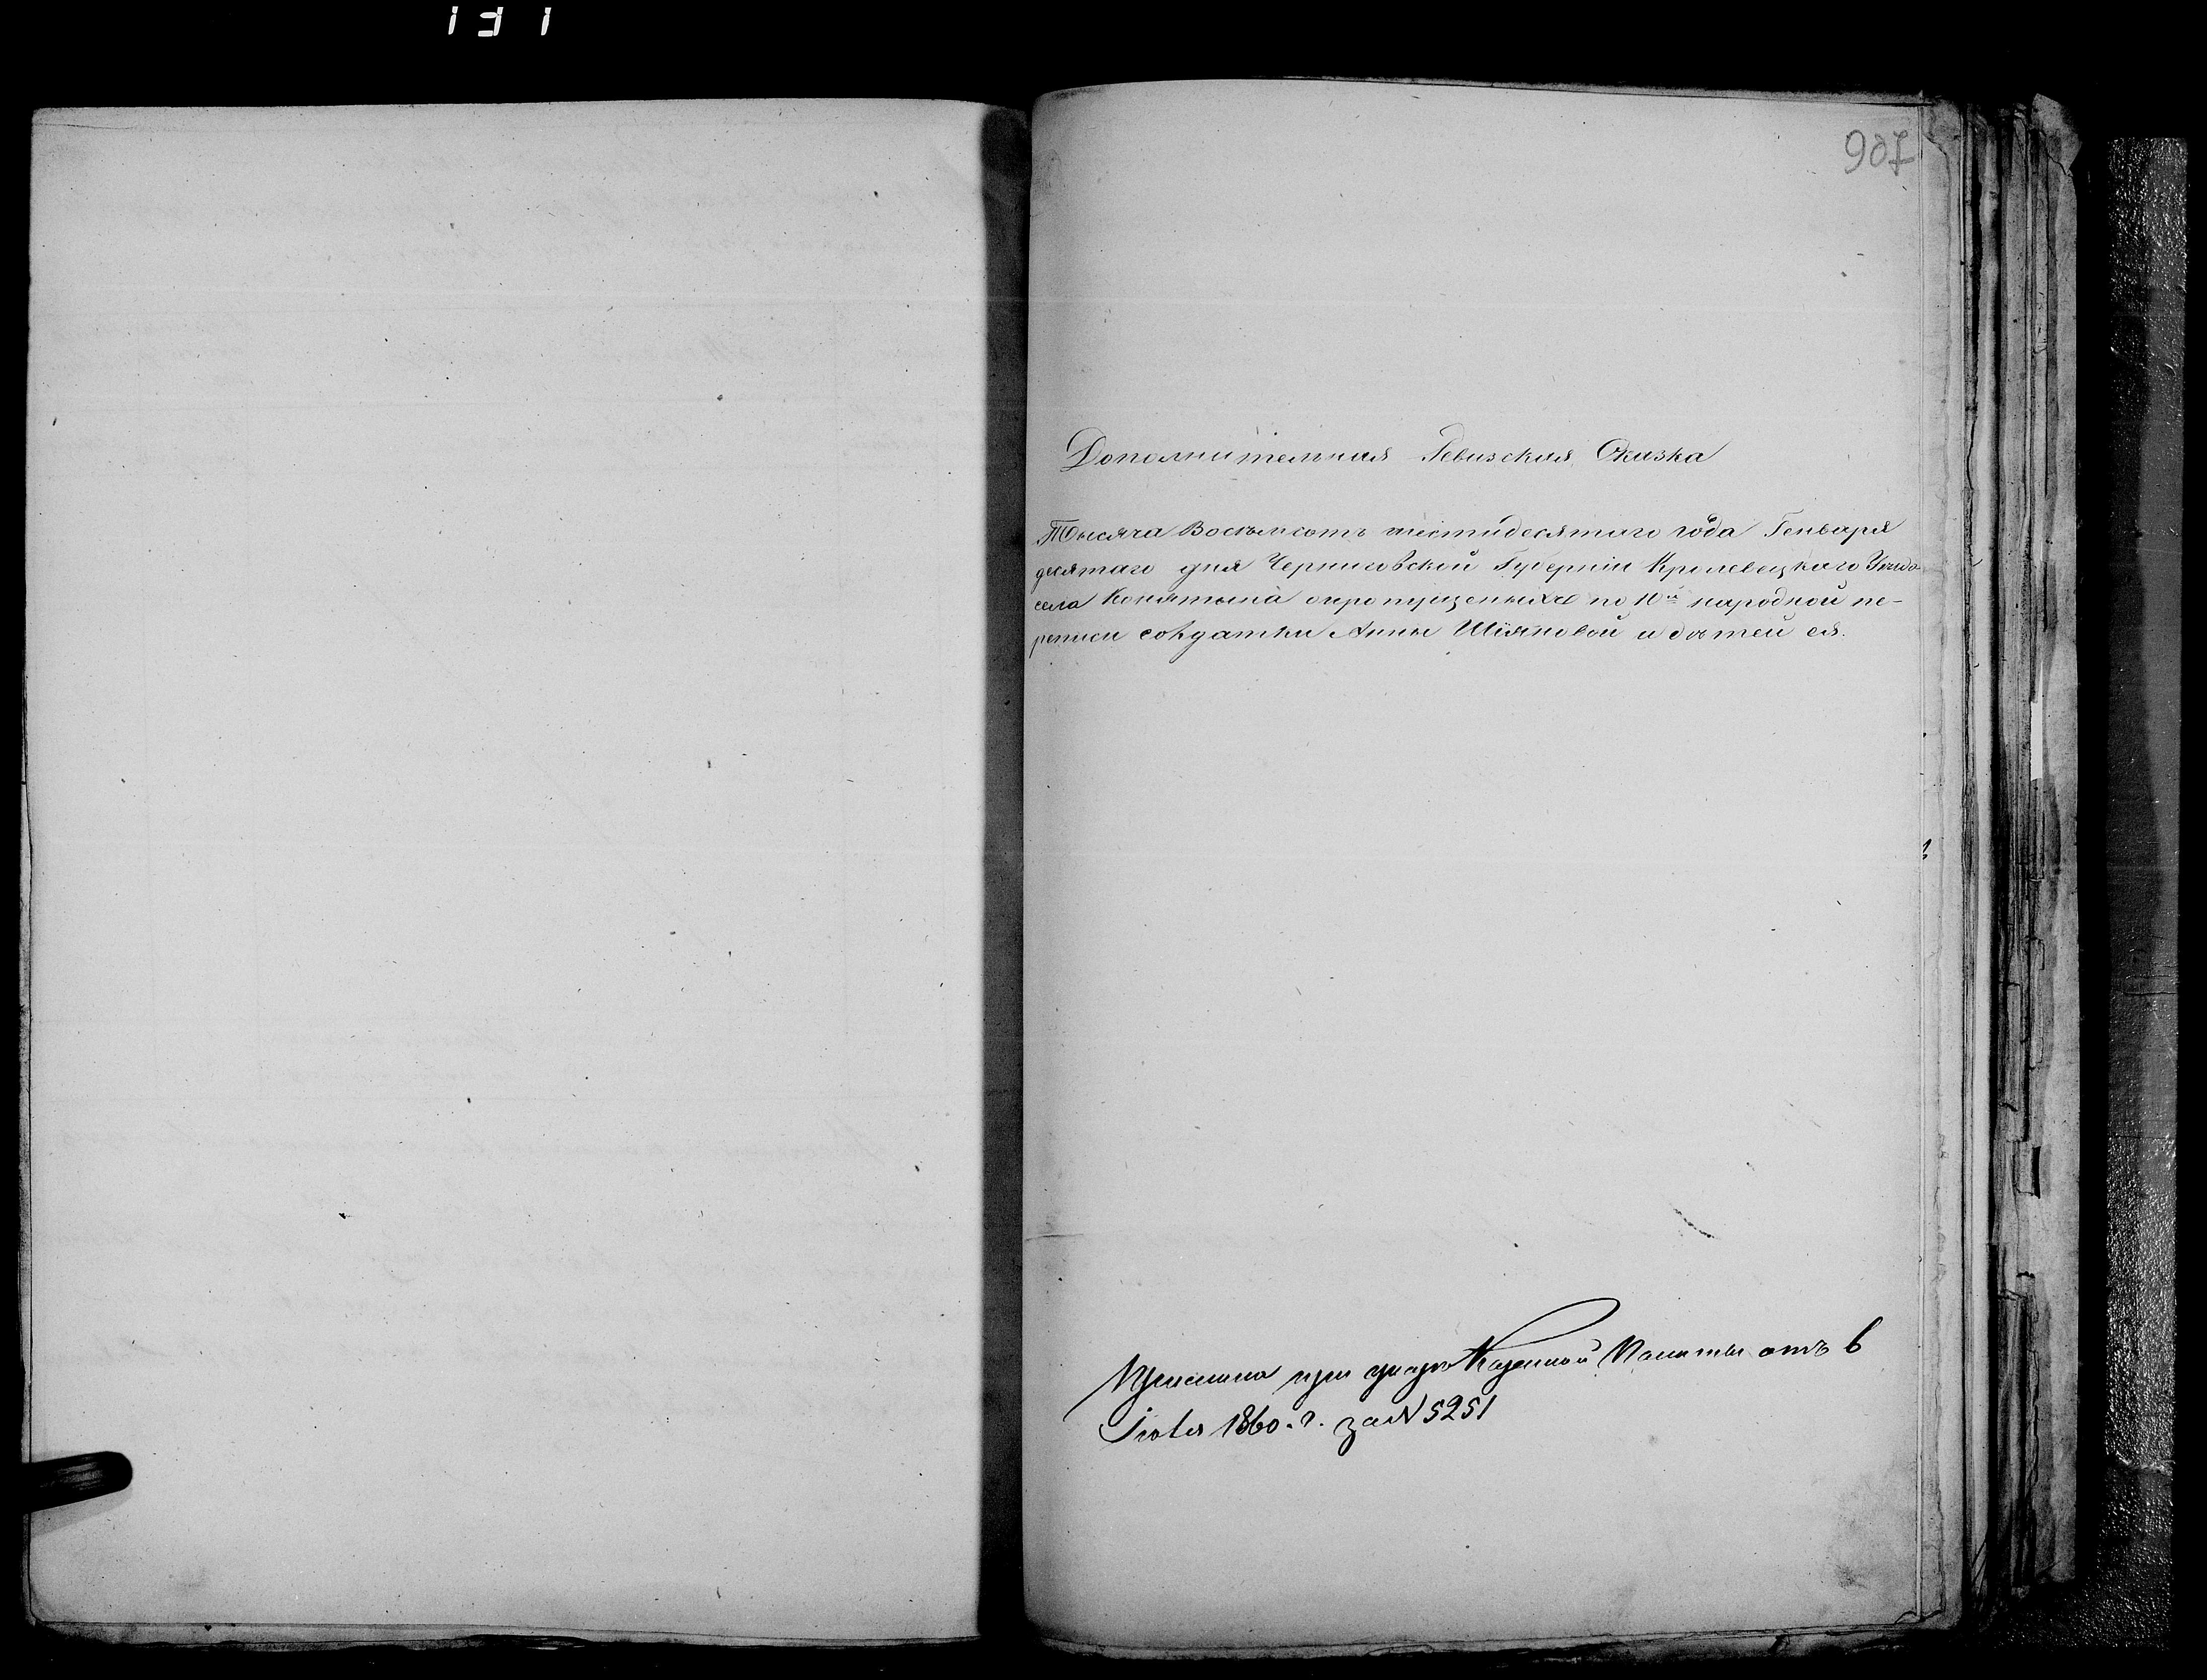 907
Дополнительная Ревизская Сказка
Тысяча Восемьсотъ шестидесятаго года Генваря
десятаго дня Черниговской Губерніи Кролевецкаго Уѣзда
села Конятина о пропущенныхъ по 10й народной пе-
реписи солдатки Анны Шіяновой и дѣтей ея.
Прислана при указѣ Казенной Палаты отъ 6
Іюля 1860. г. за № 5251